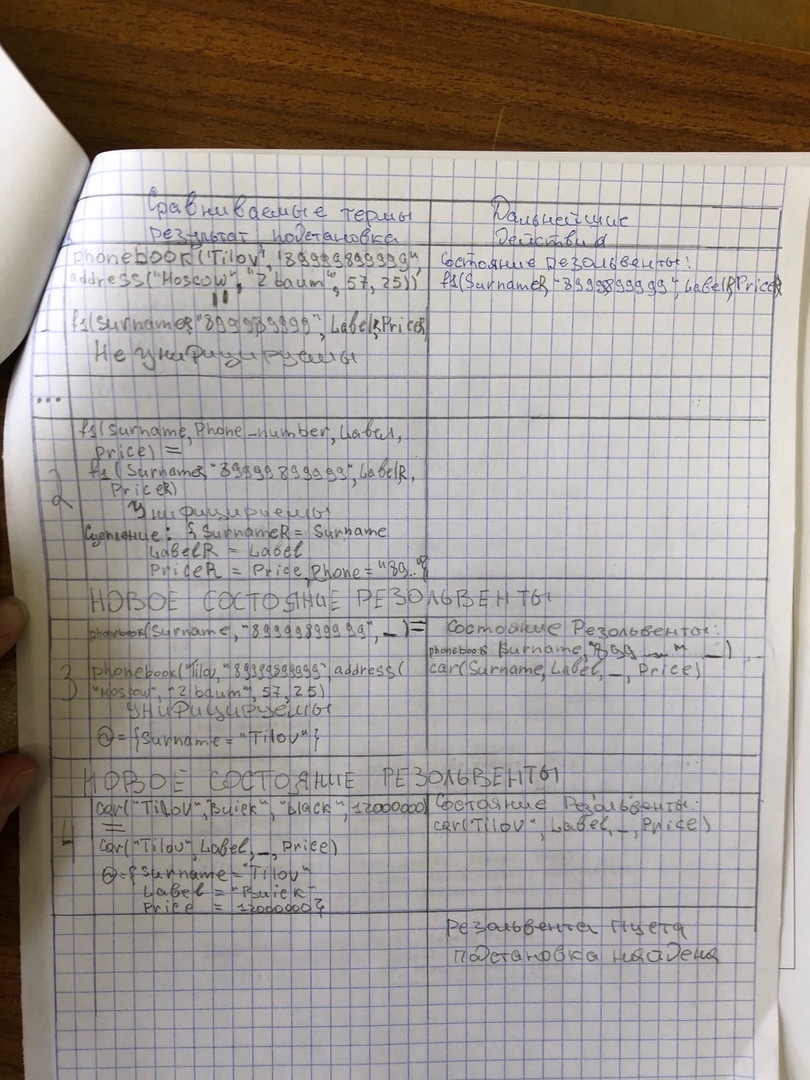 Сравниваемые термы
результат подстановка
Дальнейшие
действия
phonebook("Tilov", "89999899999",
address("Moscow", "2 baum", 57, 25))
=
f1(SurnameR, "899989999", LabelR, PriceR)
Не унифицируемы
Состояние резольвенты:
f1(SurnameR, "8999899999", LabelR, PriceR)
...
2
f1(Surname, Phone_number, Label,
price) =
f1(SurnameR, "89899899999", LabelR,
PriceR)
Унифицируемы
Сцепление: {SurnameR = Surname
LabelR = Label
PriceR = Price, Phone = "89.."}
НОВОЕ СОСТОЯНИЕ РЕЗОЛЬВЕНТЫ
3
phonebook(Surname, "89999899999", _) =
phonebook("Tilov, "89899899999", address(
"Moskow", "2 baum", 57, 25)
унифицируемы
Θ = {Surname = "Tilov"}
Состояние Резольвенты:
phonebook(Surname, "899 _ _", _),
car(Surname, Label, _, Price)
НОВОЕ СОСТОЯНИЕ РЕЗОЛЬВЕНТЫ
4
car("Tilov", Buiek", "black", 12000000)
=
car("Tilov", Label, _, Price)
Θ = {Surname = "Tilov"
Label = "Buiek"
Price = 12000000}
Состояние Резольвенты:
car(Tilov", Label, _, Price)
Резольвента пуста
подстановка найдена